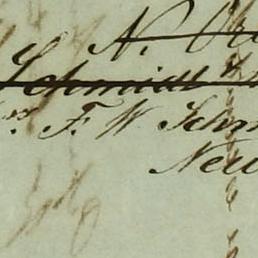 N. Or
Schmidt &
rs. F. W. Schm
New